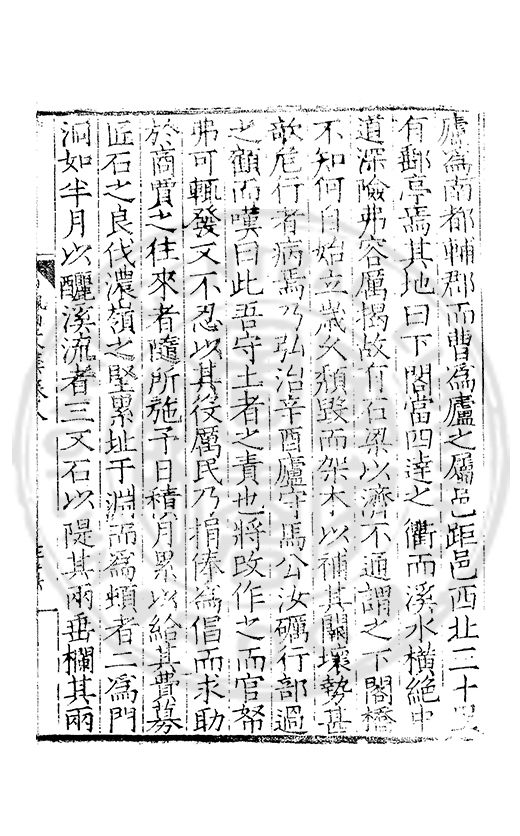 廬為南都輔郡而曹為廬之屬邑距邑西北二十里
有郵亭焉其地曰下閣當四達之衢而溪水橫絶中
道深險弗容厲揭故有石梁以濟不通謂之下閣橋
不知何自始立歲久頹毀而架木以補其闕壞勢甚
欹危行者病焉乃弘治辛酉廬守馬公汝礪行部過
之顧而嘆曰此吾守土者之責也將改作之而官帑
弗可輒發又不忍以其役厲民乃捐俸為倡而求助
於商賈之往來者隨所施予日積月累以給其費募
匠石之良伐濃嶺之堅累址于淵端為頫者二為門
洞如半月以釃溪流者三又石以隄其兩垂欄其兩